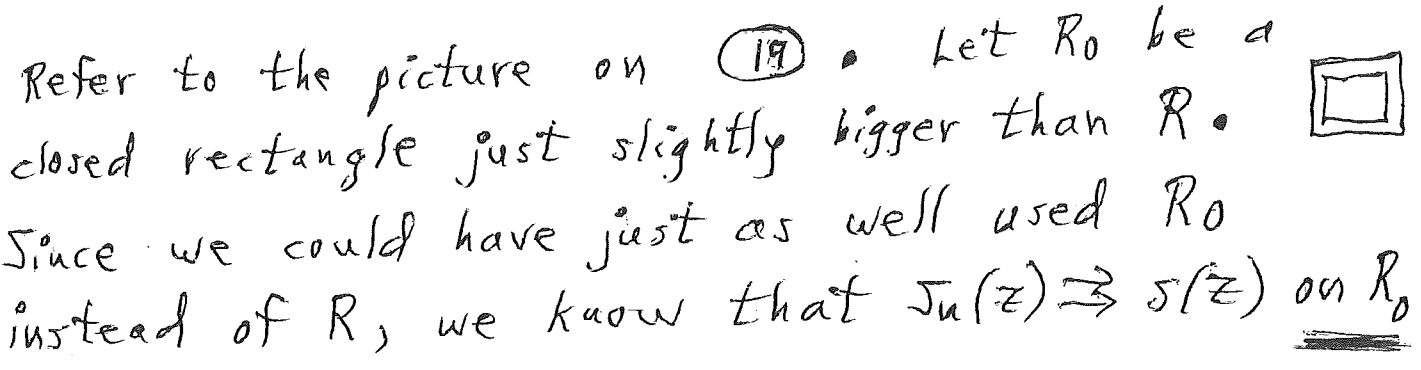 Refer to the picture on 19 . Let R₀ be a
closed rectangle just slightly bigger than R.
Since we could have just as well used R₀
instead of R, we know that Sₙ(z) ⇉ S(z) on R₀